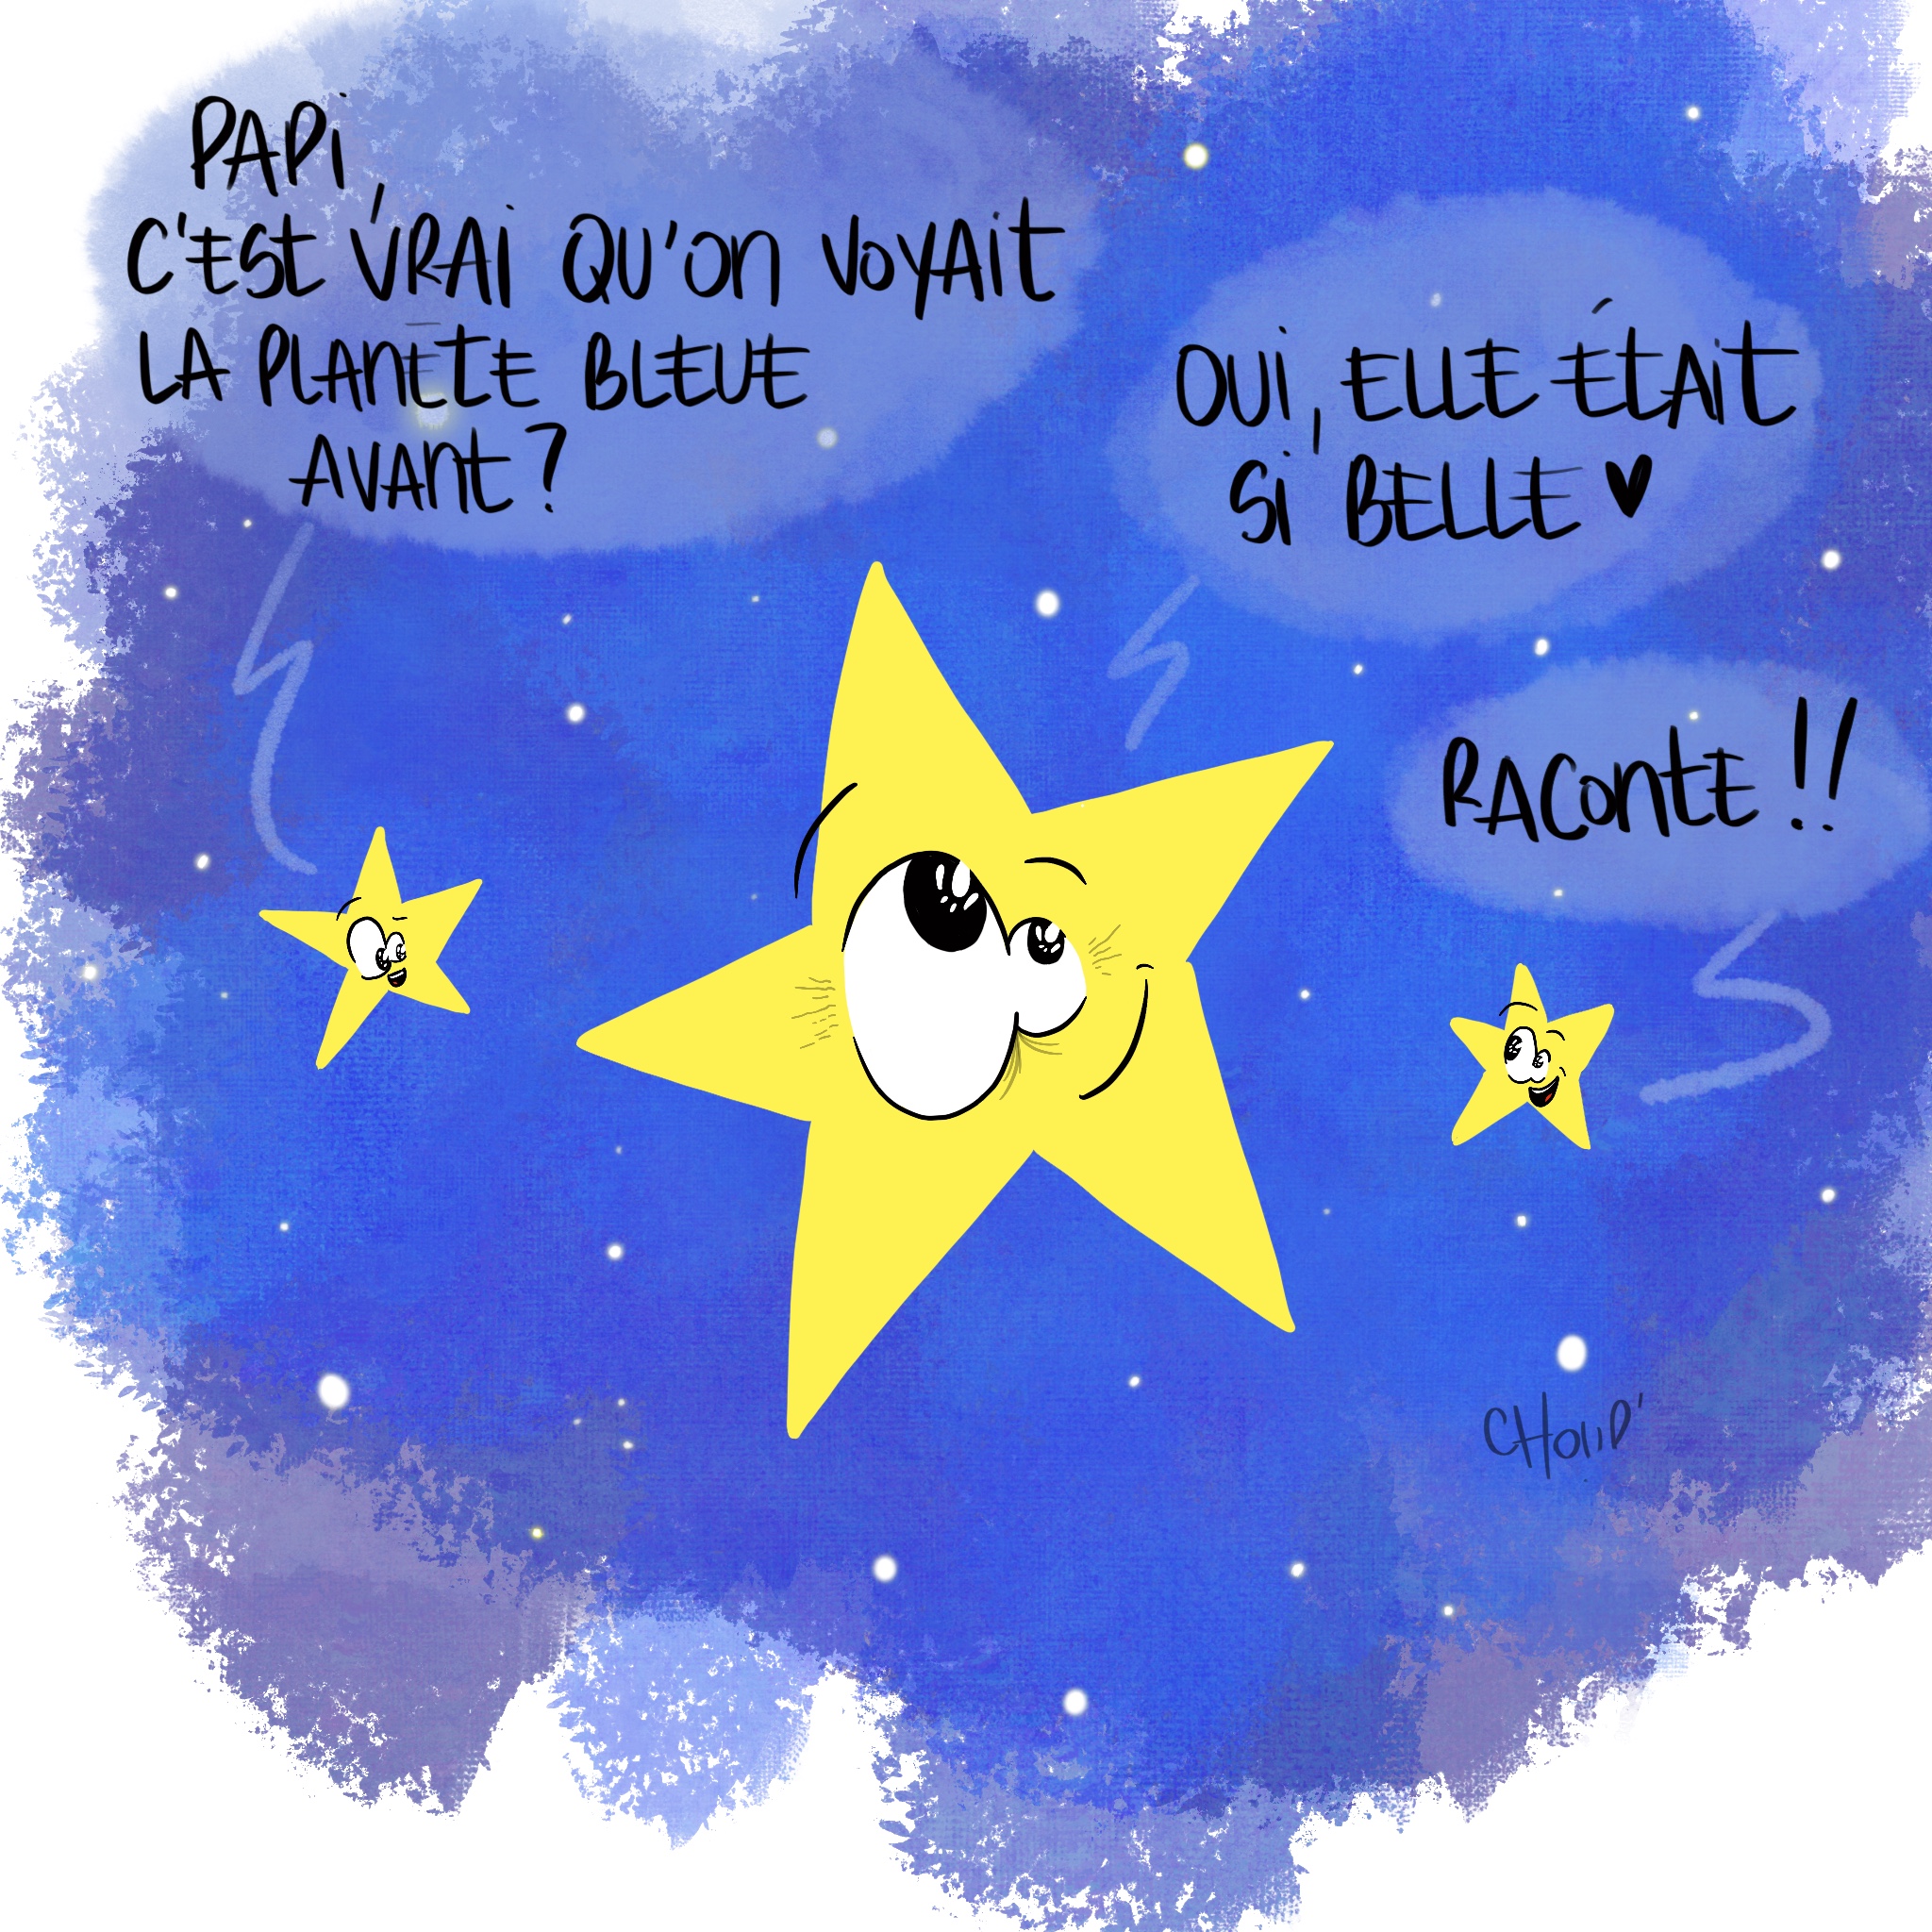 PAPi,
C'EST VRAi QU'On VoYAiT
LA PLAnETE BLEUE
AVAnT ?
OUi, ELLE ÉTAiT
Si BELLE ♥
RAConTE !!
CHoUD'